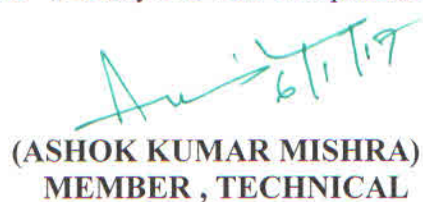 6/1/17
(ASHOK KUMAR MISHRA)
MEMBER , TECHNICAL